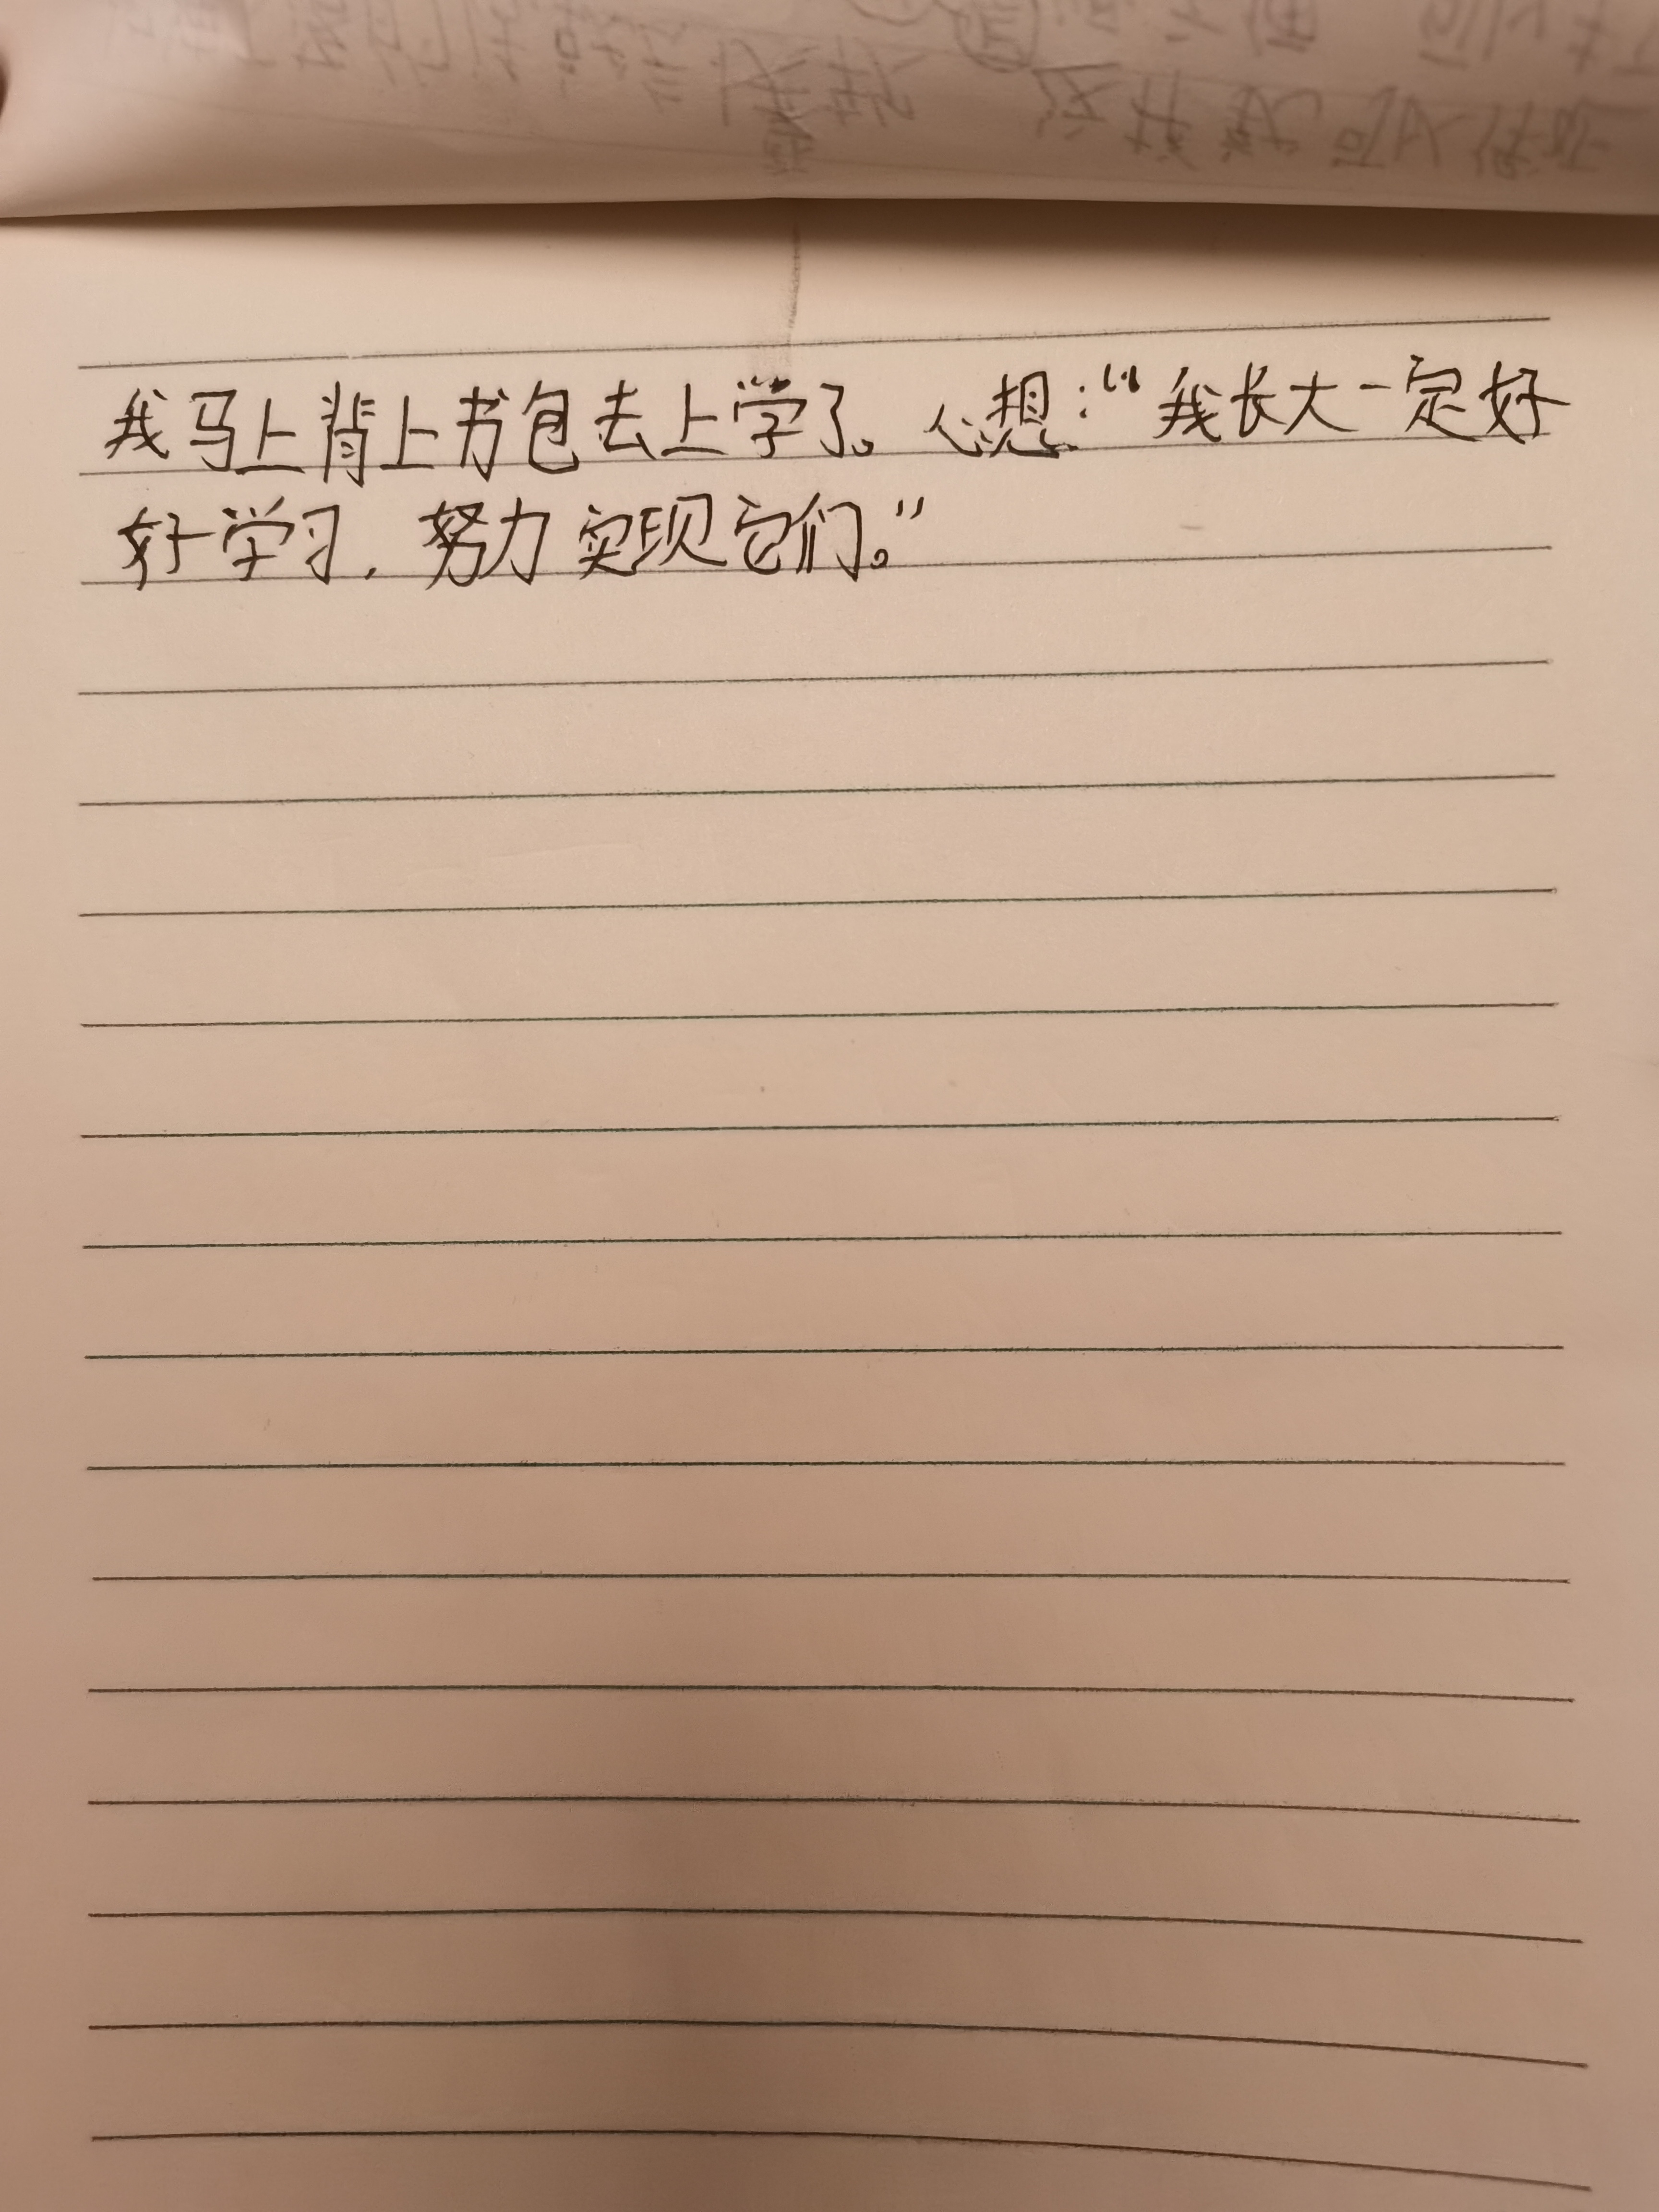 我马上背上书包去上学了。心想：“我长大一定好
好学习，努力实现它们。”